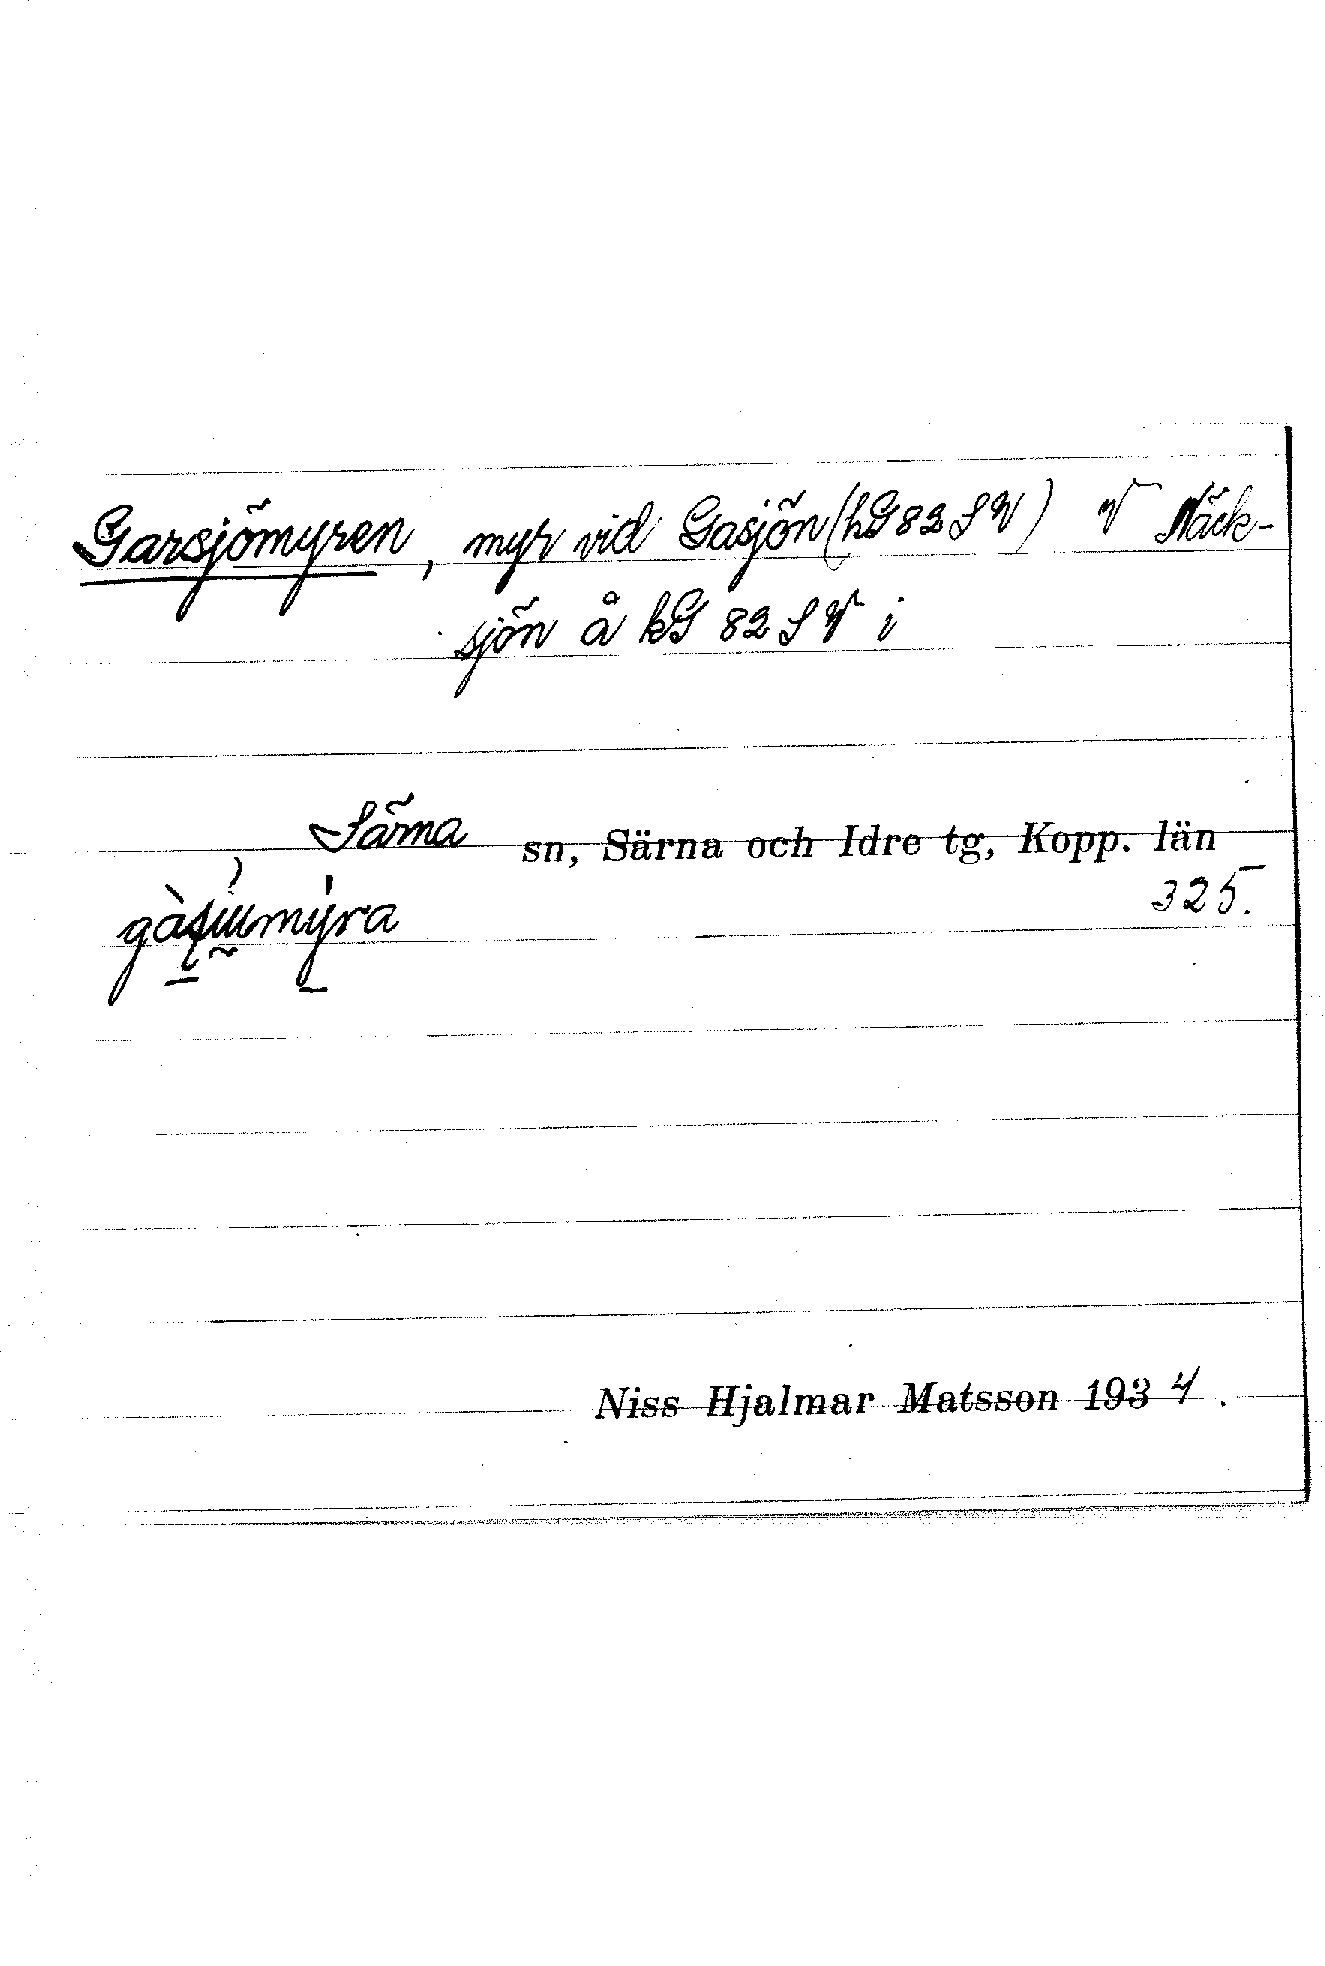 Garsjömyren, myr vid Gasjön (hG 82 SV) V Näck-
sjön å kG 82 SV i
Särna sn, Särna och Idre tg, Kopp. län
325.
Niss Hjalmar Matsson 1934.